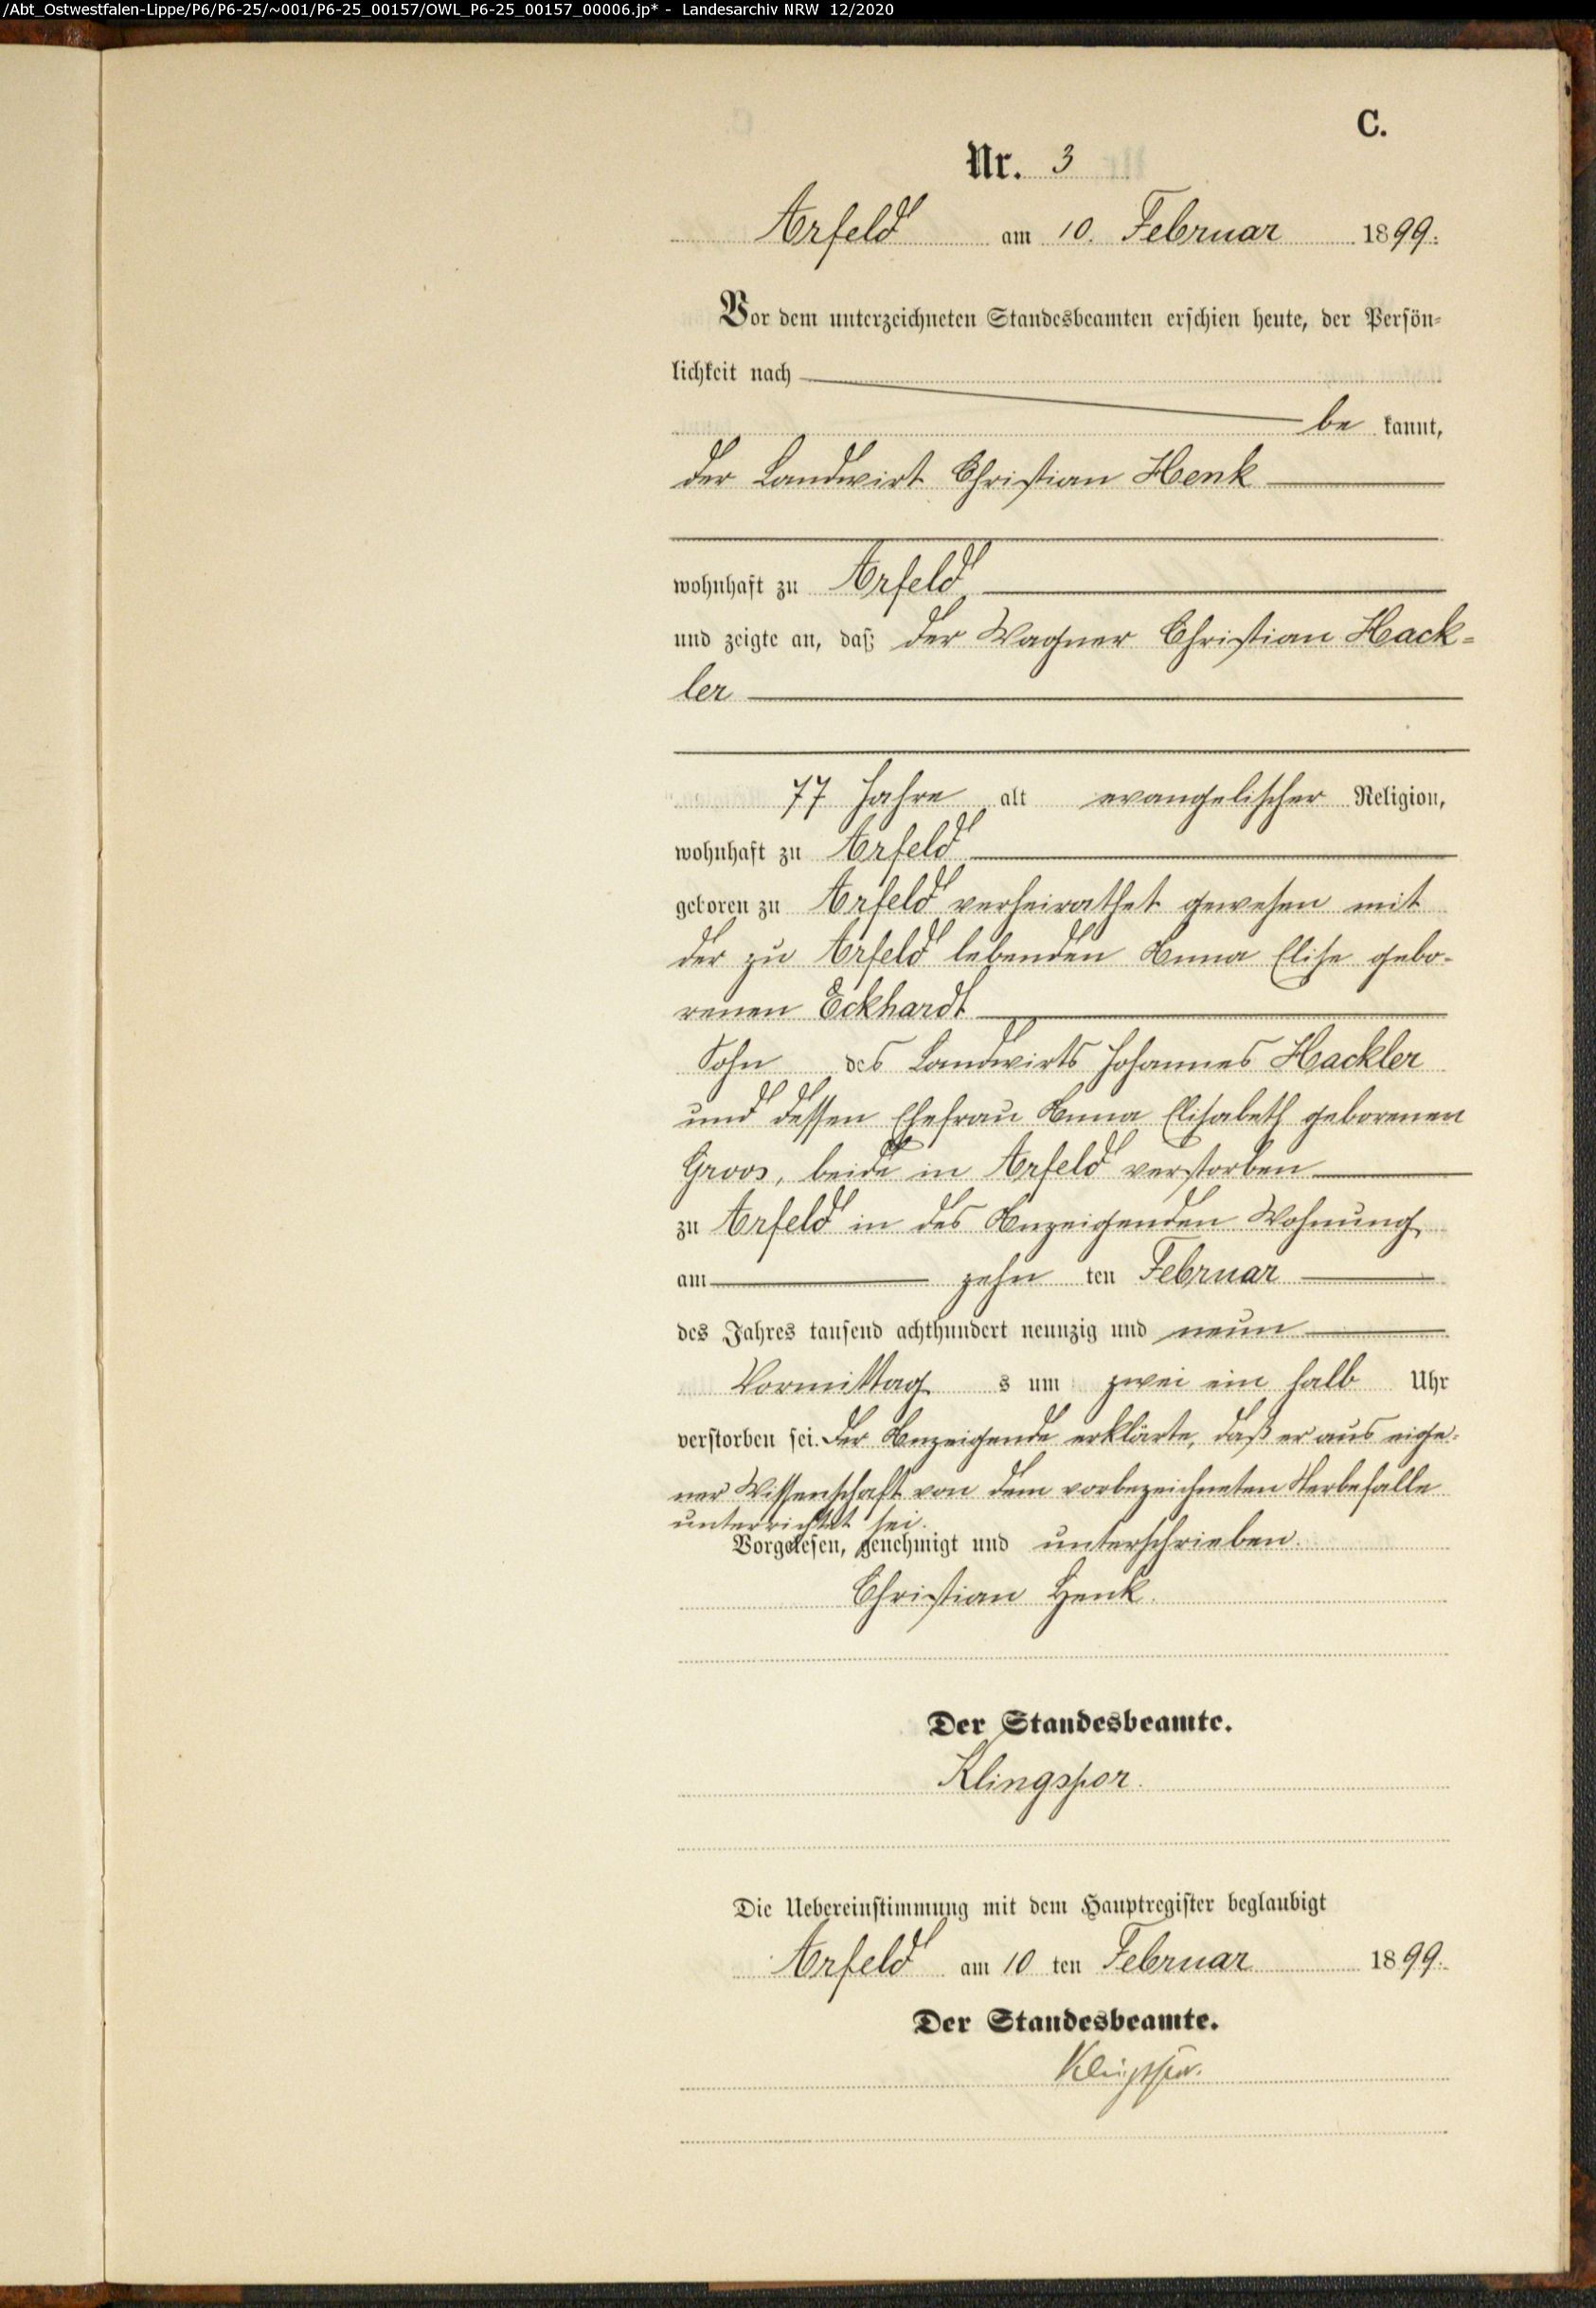 /Abt_Ostwestfalen-Lippe/P6/P6-25/~001/P6-25_00157/OWL_P6-25_00157_00006.jp* - Landesarchiv NRW 12/2020
C.
Nr. 3
Arfeld am 10. Februar 1899.
Vor dem unterzeichneten Standesbeamten erschien heute, der Persön-
lichkeit nach
be kannt,
der Landwirt Christian Henk
wohnhaft zu Arfeld
und zeigte an, daß der Wagner Christian Hack-
ler
77 Jahre alt evangelischer Religion,
wohnhaft zu Arfeld
geboren zu Arfeld verheirathet gewesen mit
der zu Arfeld lebenden Anna Elise gebo-
renen Eckhardt
Sohn des Landwirts Johannes Hackler
und dessen Ehefrau Anna Elisabeth geborenen
Groos, beide in Arfeld verstorben
zu Arfeld in des Anzeigenden Wohnung
am zehn ten Februar
des Jahres tausend achthundert neunzig und neun
Vormittag s um zwei ein halb Uhr
verstorben sei. Der Anzeigende erklärte, daß er aus eige-
ner Wissenschaft von dem vorbezeichneten Sterbefalle
unterrichtet sei.
Vorgelesen, genehmigt und unterschrieben.
Christian Henk.
Der Standesbeamte.
Klingspor.
Die Uebereinstimmung mit dem Hauptregister beglaubigt
Arfeld am 10 ten Februar 1899.
Der Standesbeamte.
Klingspor.